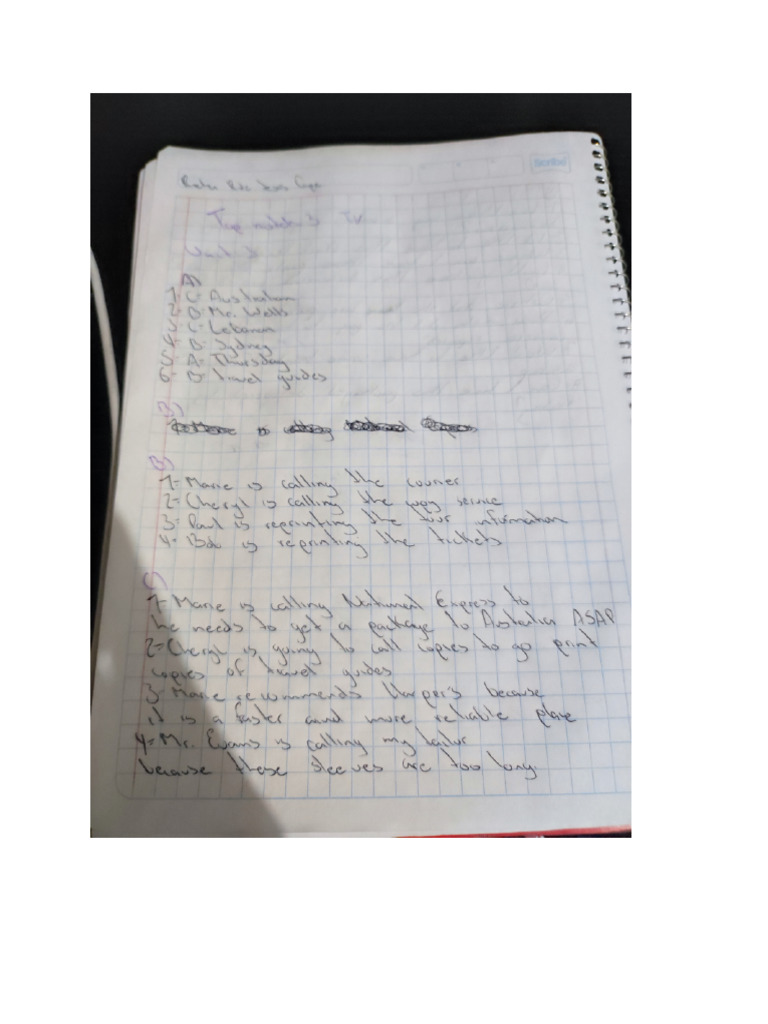 Scribe
Top notch 3 TV
Unit 3
A)
1- C- Australian
2- B- Mr. Wells
3- C- Lebanon
4- B- Sydney
5- A- Thursday
6- B- travel guides
B)
B)
1- Marie is calling the courier
2- Cheryl is calling the service
3- Paul is reprinting the tour information
4- Bob is reprinting the tickets
C)
1- Marie is calling National Express to
he needs to get a package to Australia ASAP
2- Cheryl is going to call copies to go print
copies of travel guides
3- Marie recommends Harper's because
it is a faster and more reliable place
4- Mr. Evans is calling my tailor
because these sleeves are too long.